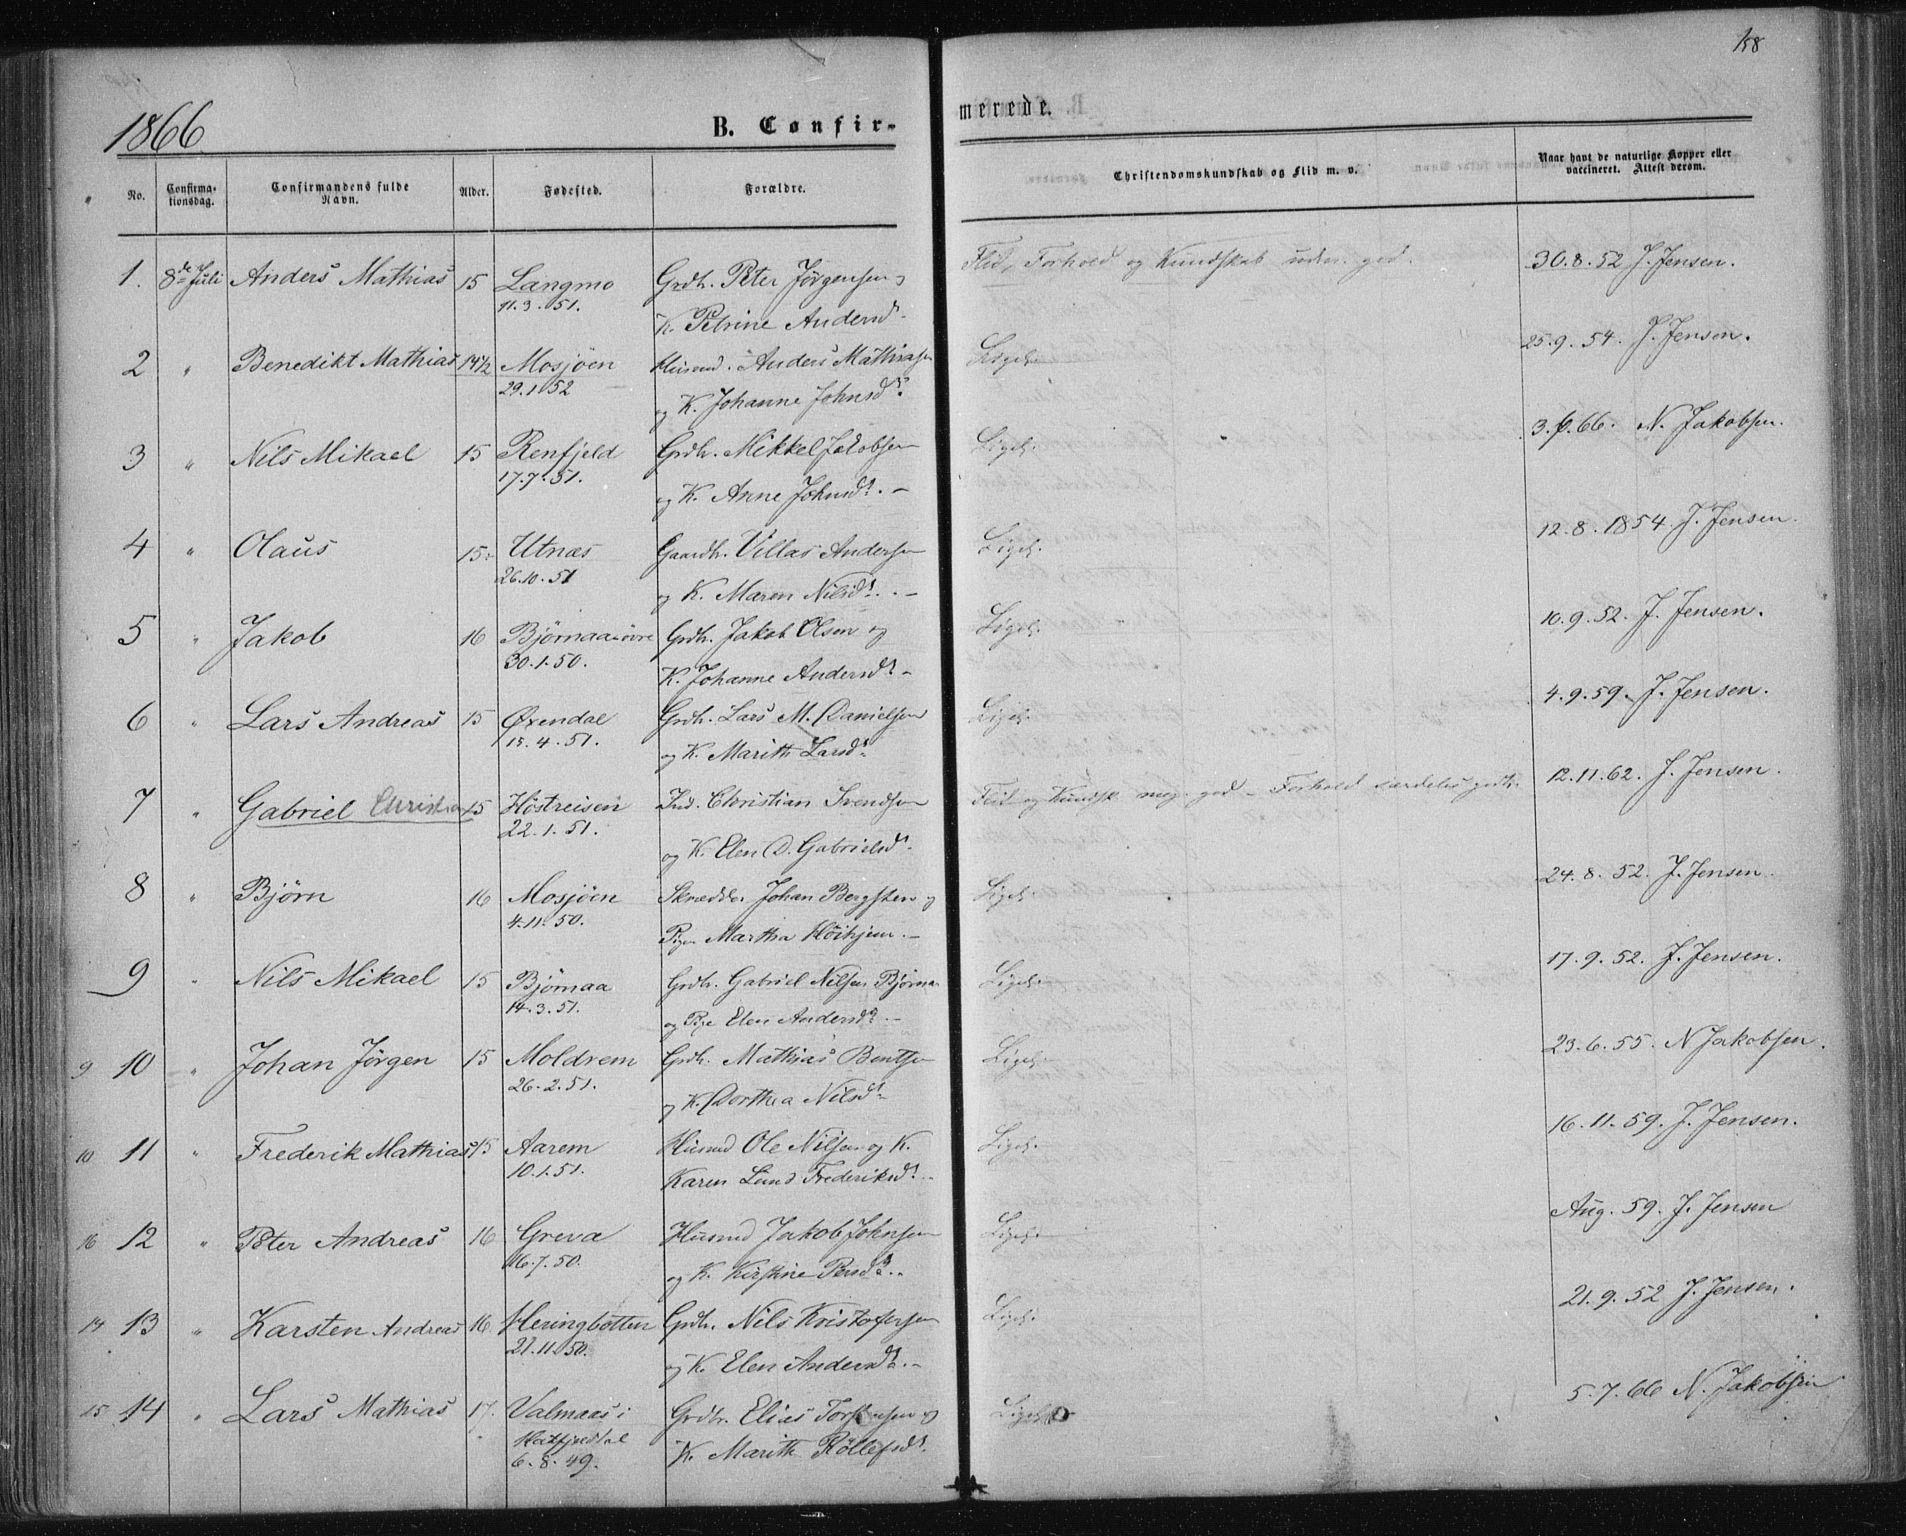 158
1866
B. Confir-
merede.
No.
Confirma-
tionsdag.
Confirmandens fulde
Navn.
Alder.
Fødested.
Forældre.
Christendomskundskab og Flid m. v.
Naar havt de naturlige Kopper eller
vaccineret. Attest derom.
1. 8de Juli Anders Mathias 15 Langmo Grdb. Peter Jørgensen og Flid, Forhold og Kundskab uden. god. 30.8.52 J. Jensen.
11.3.51.
K. Petrine Andersdt.
2 " Benedikt Mathias 14½ Mosjøen Husmd. Anders Mathiasen Ligel. 25.9.54. J. Jensen.
29.1.52
og K. Johanne Johnsdt.
3 " Nils Mikael 15 Renfjeld Grdb. Mikkel Jakobsen Ligel. 3.6.66. N. Jakobsen.
17.7.51.
og K. Anne Johnsdt. -
4 " Olaus 15. Utnæs Gaardb. Villas Andersen Ligel. 12.8.1854. J. Jensen.
26.10.51
og K. Maren Nilsdt. -
5 " Jakob 16 Bjørnaa øvre Grdb. Jakob Olsen og Ligel. 10.9.52. J. Jensen.
30.1.50.
K. Johanne Andersdt. -
6 " Lars Andreas 15 Øxendal Grdb. Lars M. Danielsen Ligel. 4.9.59. J. Jensen.
15.4.51.
og K. Marith Larsdt.
7 " Gabriel Christian 15 Høstreisen Ind. Christian Svendsen Flid og Kundsk. meg. god - Forhold særdeles godt. 12.11.62. J. Jensen.
22.1.51.
og K. Elen D. Gabrielsdt.
8 " Bjørn 16 Mosjøen Skrædder Johan Bergsten og Ligel. 24.8.52. J. Jensen.
4.11.50.
Pige Martha Høihjem. -
9 " Nils Mikael 15 Bjørnaa Grdb. Gabriel Nilsen Bjørnaa Ligel. 17.9.52. J. Jensen.
14.3.51.
og Pige Elen Andersdt. -
9 10 " Johan Jørgen 15 Moldrem Grdb. Mathias Bentsen Ligel. 23.6.55. N Jakobsen.
26.2.51.
og K. Dorthea Nilsdt.
10 11 " Frederik Mathias 15 Aarem Husmd Ole Nilsen og K. Ligel. 16.11.59. J. Jensen.
10.1.51.
Karen Lund Frederiksdt.
16 12 " Peter Andreas 16 Greva Husmd Jakob Johnsen Ligel. Aug. 59. J. Jensen
16.7.50.
og K. Kirstine Persdt.
14 13 " Karsten Andreas 16 Heringbotten Grdb. Nils Kristofersen Ligel. 21.9.52 J. Jensen.
21.11.50.
og K. Elen Andersdt. -
15 14 " Lars Mathias 17. Valmaas i Grdb. Elias Torstensen og Ligel. 5.7.66 N. Jakobsen
Hatfjeldal
6.8.49.
K. Marith Röllefsdt.